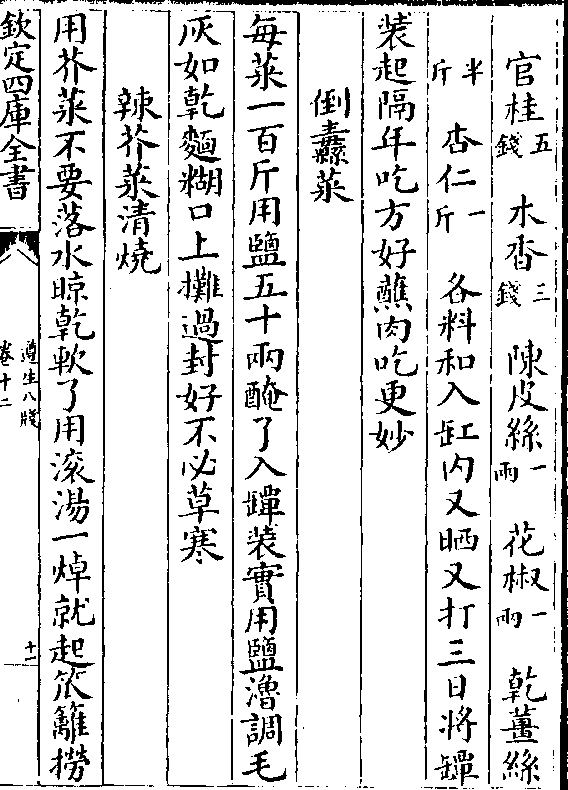 官桂五錢 木香三錢 陳皮絲一兩 花椒一兩 乾薑絲
半斤 杏仁一斤 各料和入缸内又晒又打三日將罈
装起隔年吃方好蘸肉吃更妙
倒纛菜
每菜一百斤用鹽五十兩醃了入罈装實用鹽滷調毛
灰如乾麵糊口上攤過封好不必草塞
辣芥菜清燒
用芥菜不要落水晾乾軟了用滚湯一焯就起笊籬撈
欽定四庫全書
遵生八牋
卷十二
十一